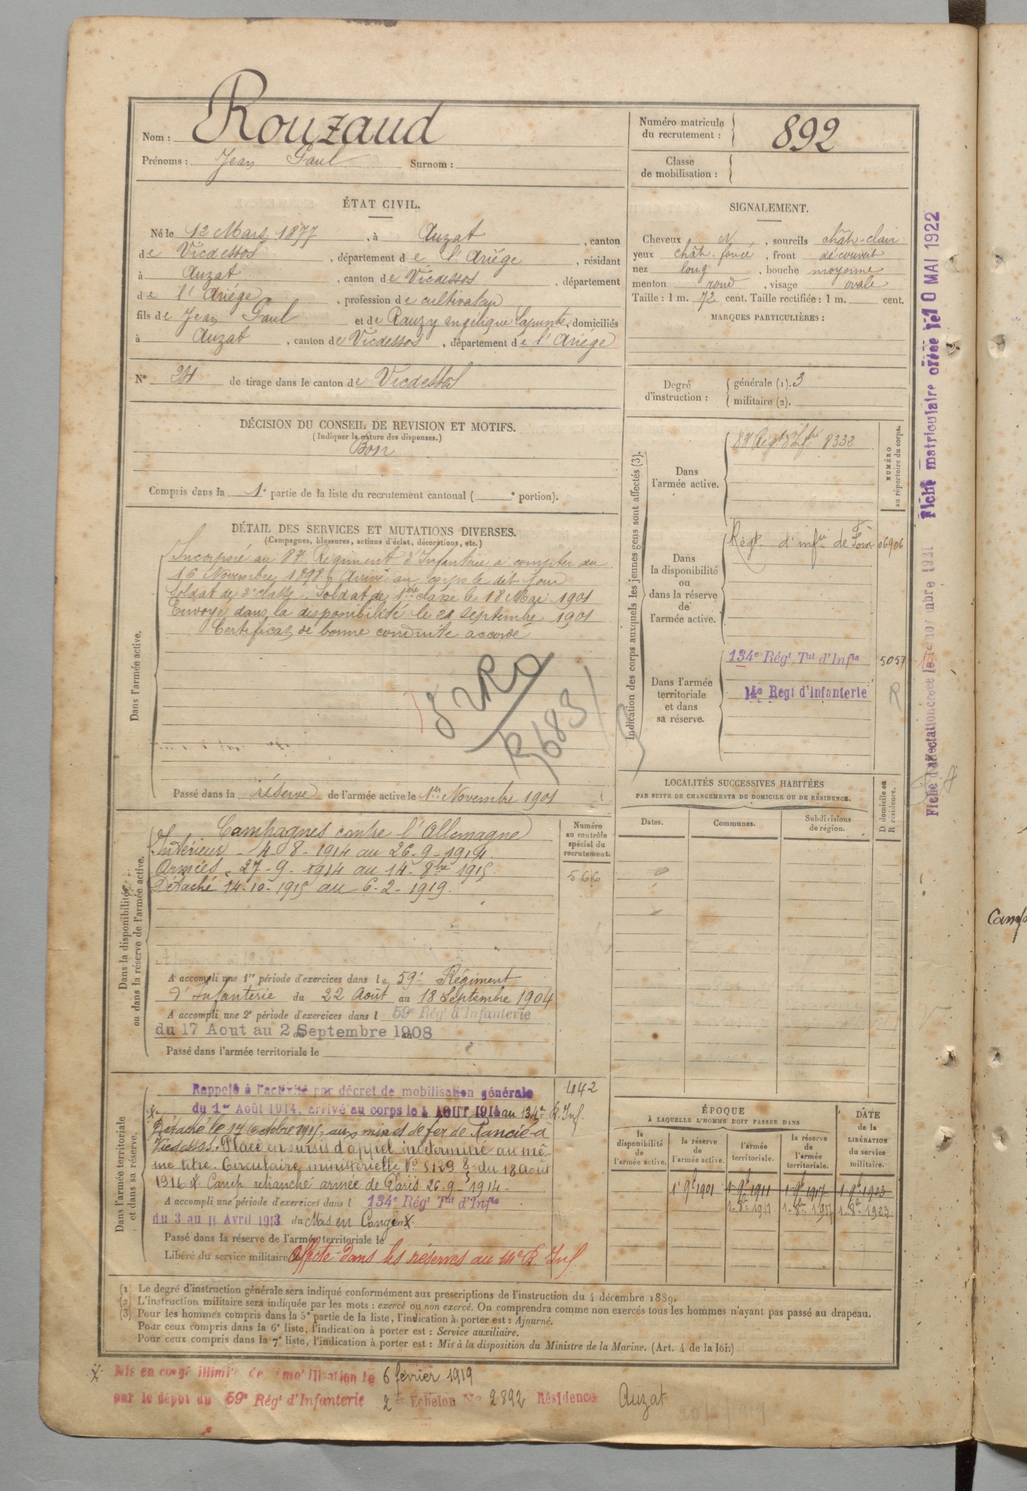 Nom : Rouzaud
Prénoms : Jean Paul Surnom :
Numéro matricule du recrutement : 892
Classe de mobilisation :
ÉTAT CIVIL.
Né le 12 Mars 1877, à Auzat, canton
de Vicdessos, département de l'Ariège, résidant
à Auzat, canton de Vicdessos, département
de l'Ariège, profession de cultivateur
fils de Jean Paul et de Rauzy Angélique Lapeunte, domiciliés
à Auzat, canton de Vicdessos, département de l'Ariège
N° 24 de tirage dans le canton de Vicdessos
SIGNALEMENT.
Cheveux N, sourcils chât-clair
yeux chât. foncé, front découvert
nez long, bouche moyenne
menton rond, visage ovale
Taille : 1 m. 72 cent. Taille rectifiée : 1 m. cent.
MARQUES PARTICULIÈRES :
Degré d'instruction : générale (1). 3
militaire (2).
DÉCISION DU CONSEIL DE REVISION ET MOTIFS.
(Indiquer la nature des dispenses.)
Bon
Compris dans la 1e partie de la liste du recrutement cantonal ( e portion).
DÉTAIL DES SERVICES ET MUTATIONS DIVERSES.
(Campagnes, blessures, actions d'éclat, décorations, etc.)
Dans l'armée active.
Incorporé au 87e Régiment d'Infanterie à compter du
16 Novembre 1898, Arrivé au corps le dit jour
Soldat de 2e classe. Soldat de 1ère classe le 18 Mai 1901
Envoyé dans la disponibilité le 21 Septembre 1901
Certificat de bonne conduite accordé
Passé dans la réserve de l'armée active le 1er Novembre 1901
Indication des corps auxquels les jeunes gens sont affectés (3).
NUMÉRO au répertoire du corps.
Dans l'armée active.
87 Régt d'Infrie 8332
Dans la disponibilité ou dans la réserve de l'armée active.
Régt d'infrie de Foix 06906
Dans l'armée territoriale et dans sa réserve.
134e Régt Tal d'Infie 5057
14e Regt d'Infanterie R
LOCALITÉS SUCCESSIVES HABITÉES
PAR SUITE DE CHANGEMENTS DE DOMICILE OU DE RÉSIDENCE.
Dates. Communes. Subdivisions de région. D domicile ou R résidence.
Dans la disponibilité ou dans la réserve de l'armée active.
Numéro au contrôle spécial du recrutement.
566
Campagnes contre l'Allemagne
Intérieur 4-8-1914 au 26-9-1914
Armées 27-9-1914 au 14-8bre 1915
Détaché 14-10-1915 au 6-2-1919.
A accompli une 1re période d'exercices dans le 59e Régiment
d'Infanterie du 22 Août au 18 Septembre 1904
A accompli une 2e période d'exercices dans l 59e Rég d'Infanterie
du 17 Aout au 2 Septembre 1908
Passé dans l'armée territoriale le
Dans l'armée territoriale et dans sa réserve.
442
Rappelé à l'activité par décret de mobilisation générale
du 1er Août 1914, arrivé au corps le 4 AOUT 1914 au 134e R. Inf.
Détaché le 14 octobre 1915 aux mines de fer de Rancié à
Vicdessos. Placé en sursis d'appel indéterminé au mê-
me titre. Circulaire ministérielle N° du 18 août
1916 Camp retranché armée de Paris 26-9-1914.
A accompli une période d'exercices dans l 134e Régt Tal d'Infie
du 3 au 11 Avril 1913 du Mis en Congé X
Passé dans la réserve de l'armée territoriale le
Libéré du service militaire Affecté dans les réserves au 14e R. Inf
ÉPOQUE
À LAQUELLE L'HOMME DOIT PASSER DANS
la disponibilité de l'armée active. la réserve de l'armée active. l'armée territoriale. la réserve de l'armée territoriale.
DATE de la LIBÉRATION du service militaire.
1er 9bre 1901 1er 9bre 1911 1er 9bre 1917 1er 9bre 1923
(1) Le degré d'instruction générale sera indiqué conformément aux prescriptions de l'instruction du 4 décembre 1889.
(2) L'instruction militaire sera indiquée par les mots : exercé ou non exercé. On comprendra comme non exercés tous les hommes n'ayant pas passé au drapeau.
(3) Pour les hommes compris dans la 5e partie de la liste, l'indication à porter est : Ajourné.
Pour ceux compris dans la 6e liste, l'indication à porter est : Service auxiliaire.
Pour ceux compris dans la 7e liste, l'indication à porter est : Mis à la disposition du Ministre de la Marine. (Art. 4 de la loi.)
X Mis en congé illimité de démobilisation le 6 février 1919
par le dépôt du 59e Régt d'Infanterie 2e Echelon No 2892 Résidence Auzat
Fiche matriculaire créée le 10 MAI 1922